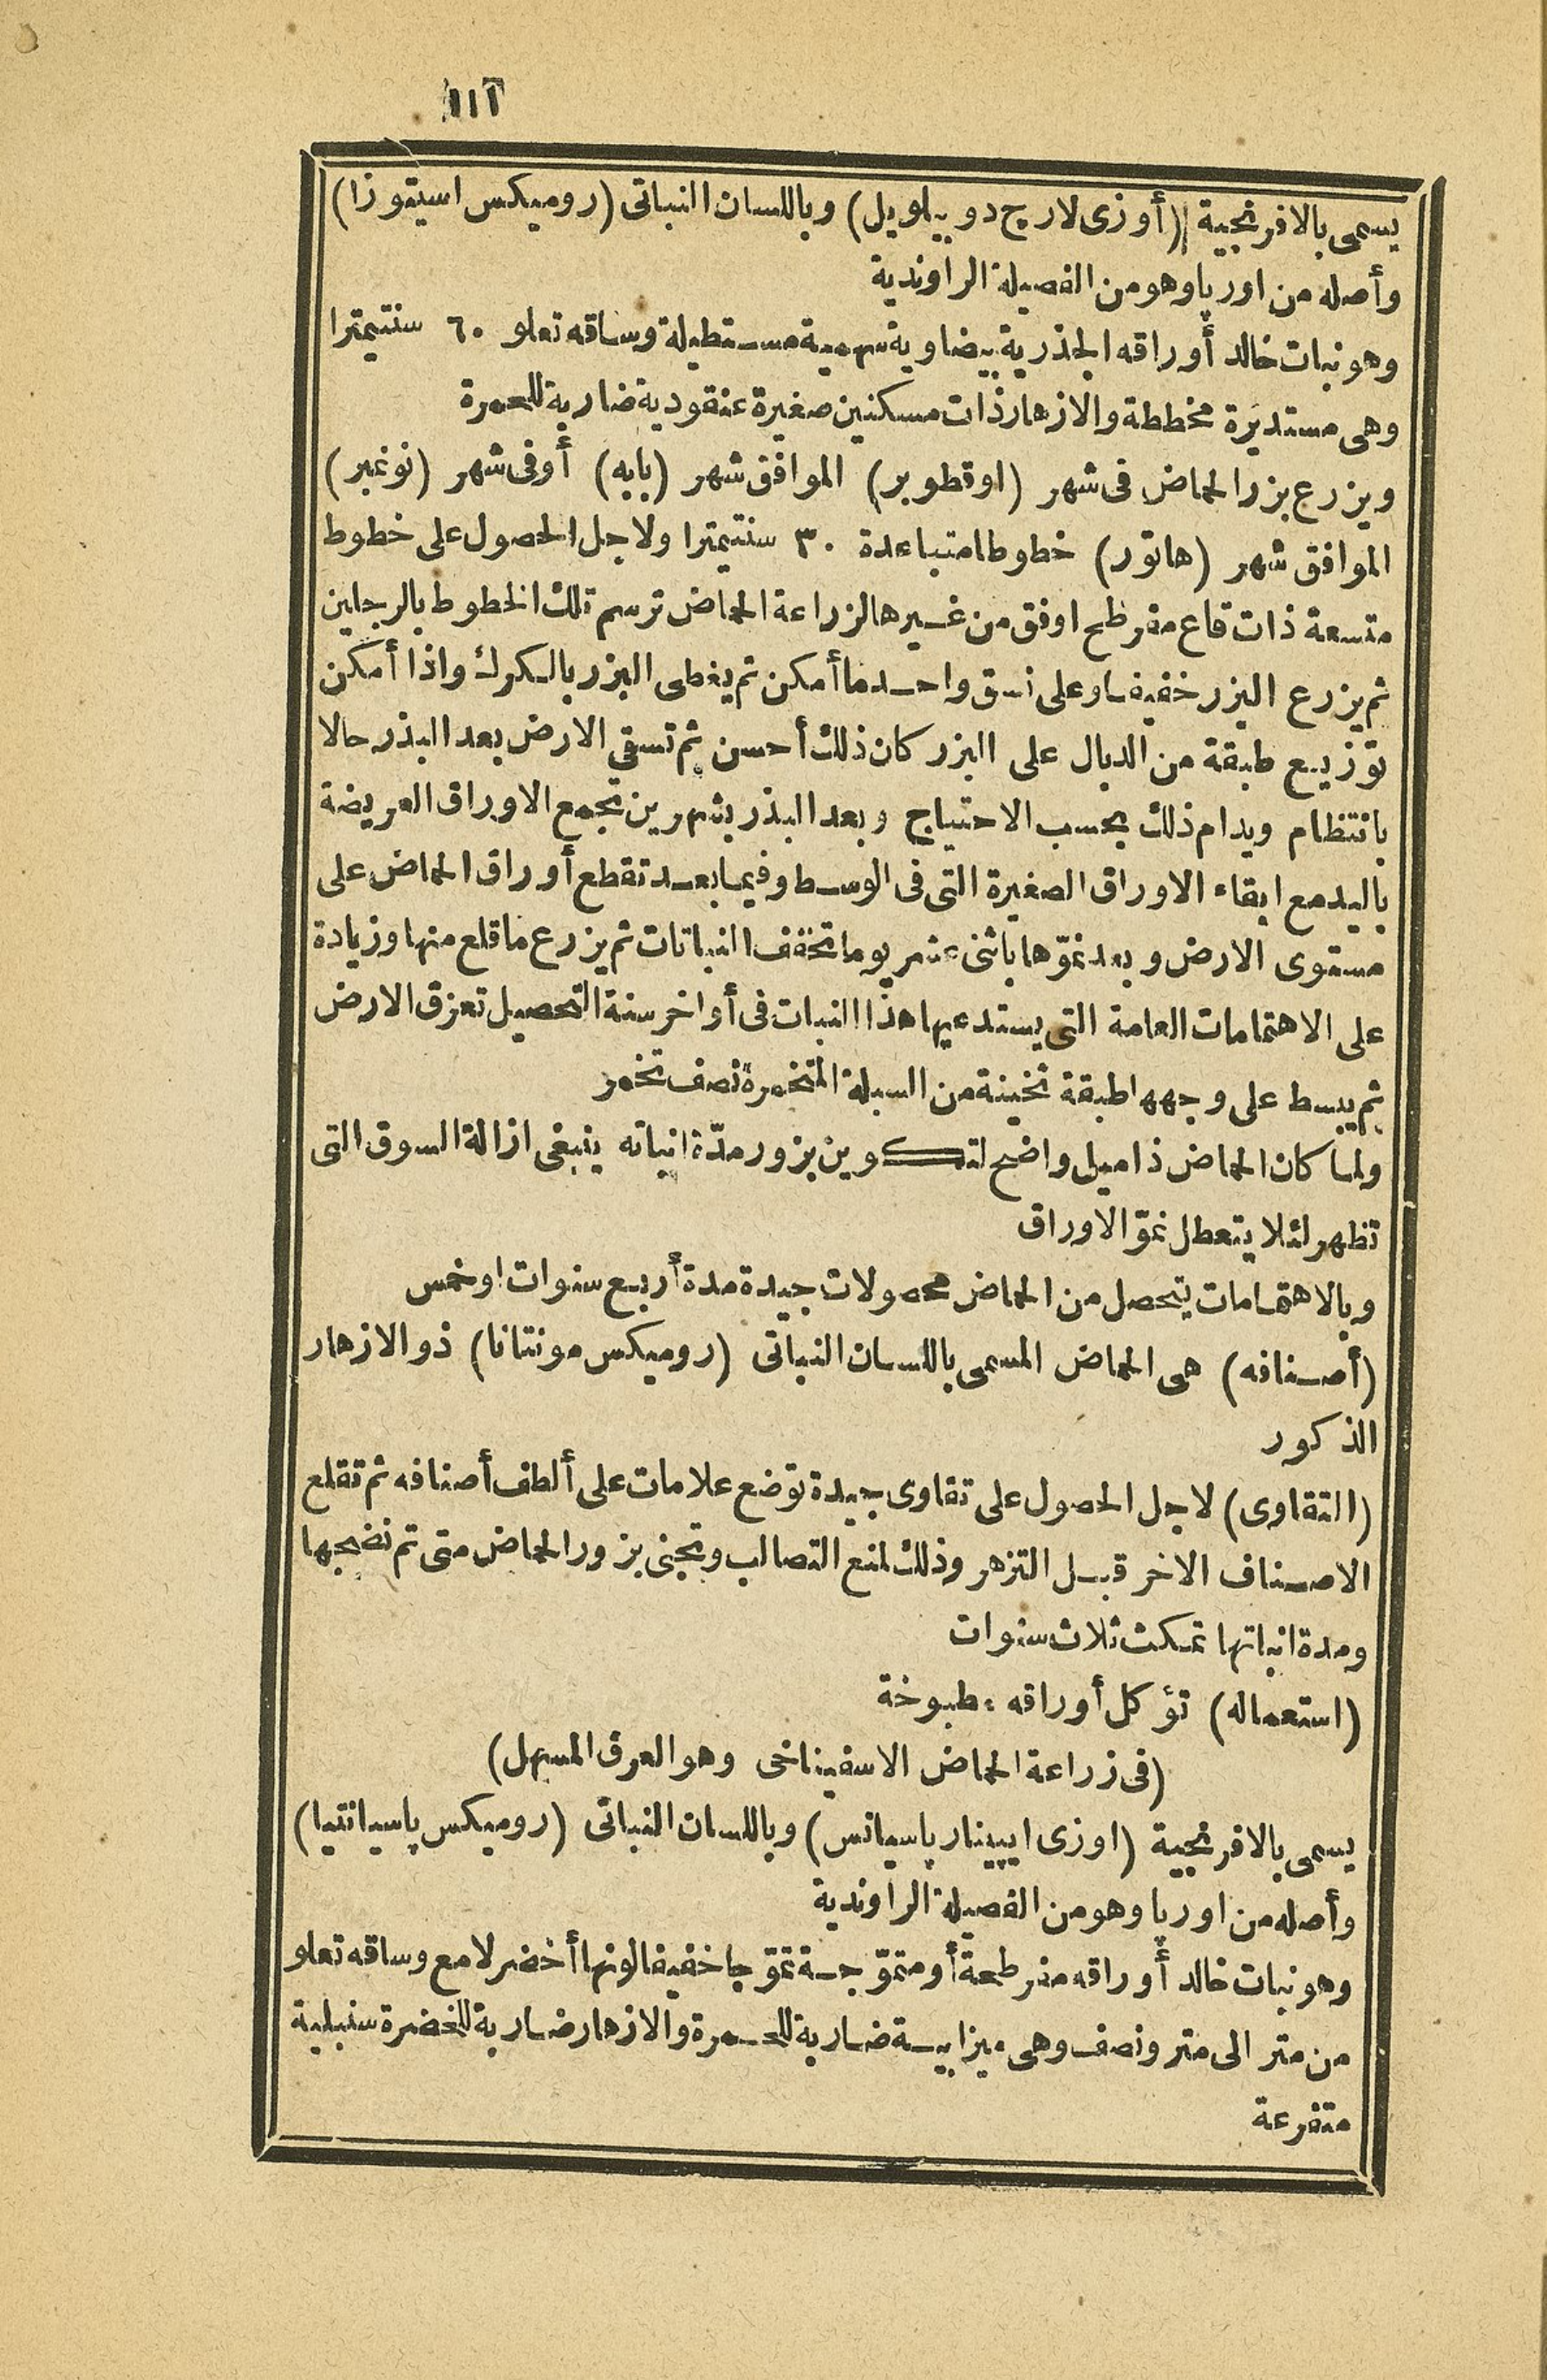 يسمى بالافرنجية (أوزى لارج دو بيلويل) وباللسان النباتى (روميكس اسيتوزا)
وأصله من اورپا وهو من الفصيلة الراوندية
وهو نبات خالد أوراقه الجذرية بيضاوية سهمية مستطيلة وساقه تعلو ٦٠ سنتيمترا
وهى مستديرة مخططة والازهار ذات مسكنين صغيرة عنقودية ضاربة للحمرة
ويزرع بزر الحماض فى شهر (اوقطوبر) الموافق شهر (بابه) أوفى شهر (نوغبر)
الموافق شهر (هاتور) خطوطا متباعدة ٣٠ سنتيمترا ولاجل الحصول على خطوط
متسعة ذات قاع مفرطح اوفق من غيرها لزراعة الحماض ترسم تلك الخطوط بالرجلين
ثم يزرع البزر خفيفا وعلى نسق واحد ما أمكن ثم يغطى البزر بالكرك واذا أمكن
توزيع طبقة من الدبال على البزر كان ذلك أحسن ثم تسقى الارض بعد البذر حالا
بانتظام ويدام ذلك بحسب الاحتياج وبعد البذر بشهرين تجمع الاوراق العريضة
باليد مع ابقاء الاوراق الصغيرة التى فى الوسط وفيما بعد تقطع أوراق الحماض على
مستوى الارض وبعد نموّها باثنى عشر يوما تخفف النباتات ثم يزرع ما قلع منها وزيادة
على الاهتمامات العامة التى يستدعيها هذا النبات فى أواخر سنة التحصيل تعزق الارض
ثم يبسط على وجهها طبقة ثخينة من السبلة المتخمرة نصف تخمر
ولما كان الحماض ذا ميل واضح لتكوين بزور مدّة انباته ينبغى ازالة السوق التى
تظهر لئلا يتعطل نموّ الاوراق
وبالاهتمامات يتحصل من الحماض محصولات جيدة مدة أربع سنوات اوخمس
(أصنافه) هى الحماض المسمى باللسان النباتى (روميكس مونتانا) ذو الازهار
الذكور
(التقاوى) لاجل الحصول على تقاوى جيدة توضع علامات على ألطف أصنافه ثم تقلع
الاصناف الاخر قبل التزهر وذلك لمنع التصالب وتجنى بزور الحماض متى تم نضجها
ومدة انباتها تمكث ثلاث سنوات
(استعماله) تؤكل أوراقه مطبوخة
(فى زراعة الحماض الاسفيناخى وهو العرق المسهل)
يسمى بالافرنجية (اوزى ايپينار پاسيانس) وباللسان النباتى (روميكس پاسيانتيا)
وأصله من اورپا وهو من الفصيلة الراوندية
وهو نبات خالد أوراقه مفرطحة أو متموّجة تموّجا خفيفا لونها أخضر لامع وساقه تعلو
من متر الى متر ونصف وهى ميزابية ضاربة للحمرة والازهار ضاربة للخضرة سنبلية
متفرعة